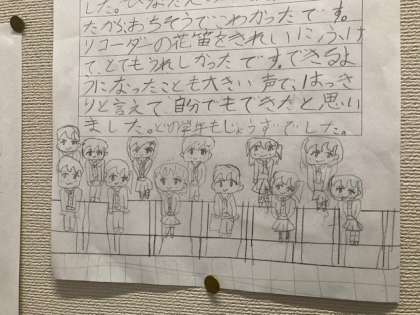 した。ひなだん
たから、おちそうでこわかったです。
リコーダーの花笛をきれいにふけ
て、とてもうれしかったです。できるよ
うになったことも大きい声で、はっき
りと言えて自分でもできたと思い
ました。どの学年もじょうずでした。